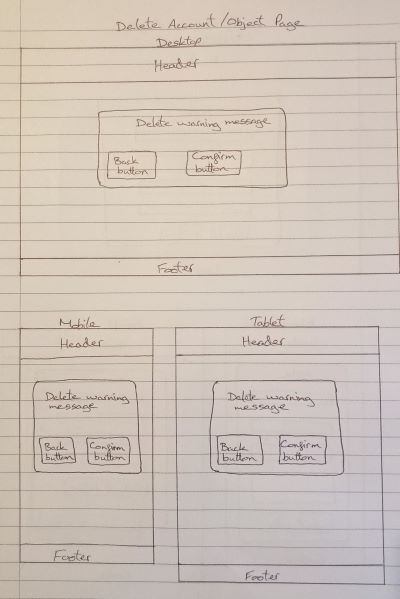 Delete Account/Object Page
Desktop
Header
Delete warning message
Back
button
Confirm
button
Footer
Mobile
Header
Delete warning
message
Back
button
Confirm
button
Footer
Tablet
Header
Delete warning
message
Back
button
Confirm
button
Footer